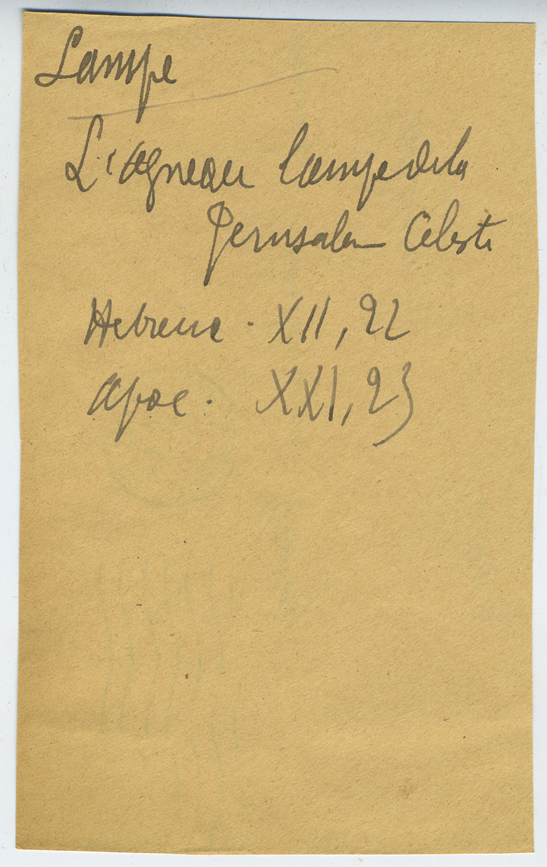 Lampe
L'Agneau lampe de la
Jerusalem Celeste
Hebreux . XII, 22
Apoc . XXI, 23